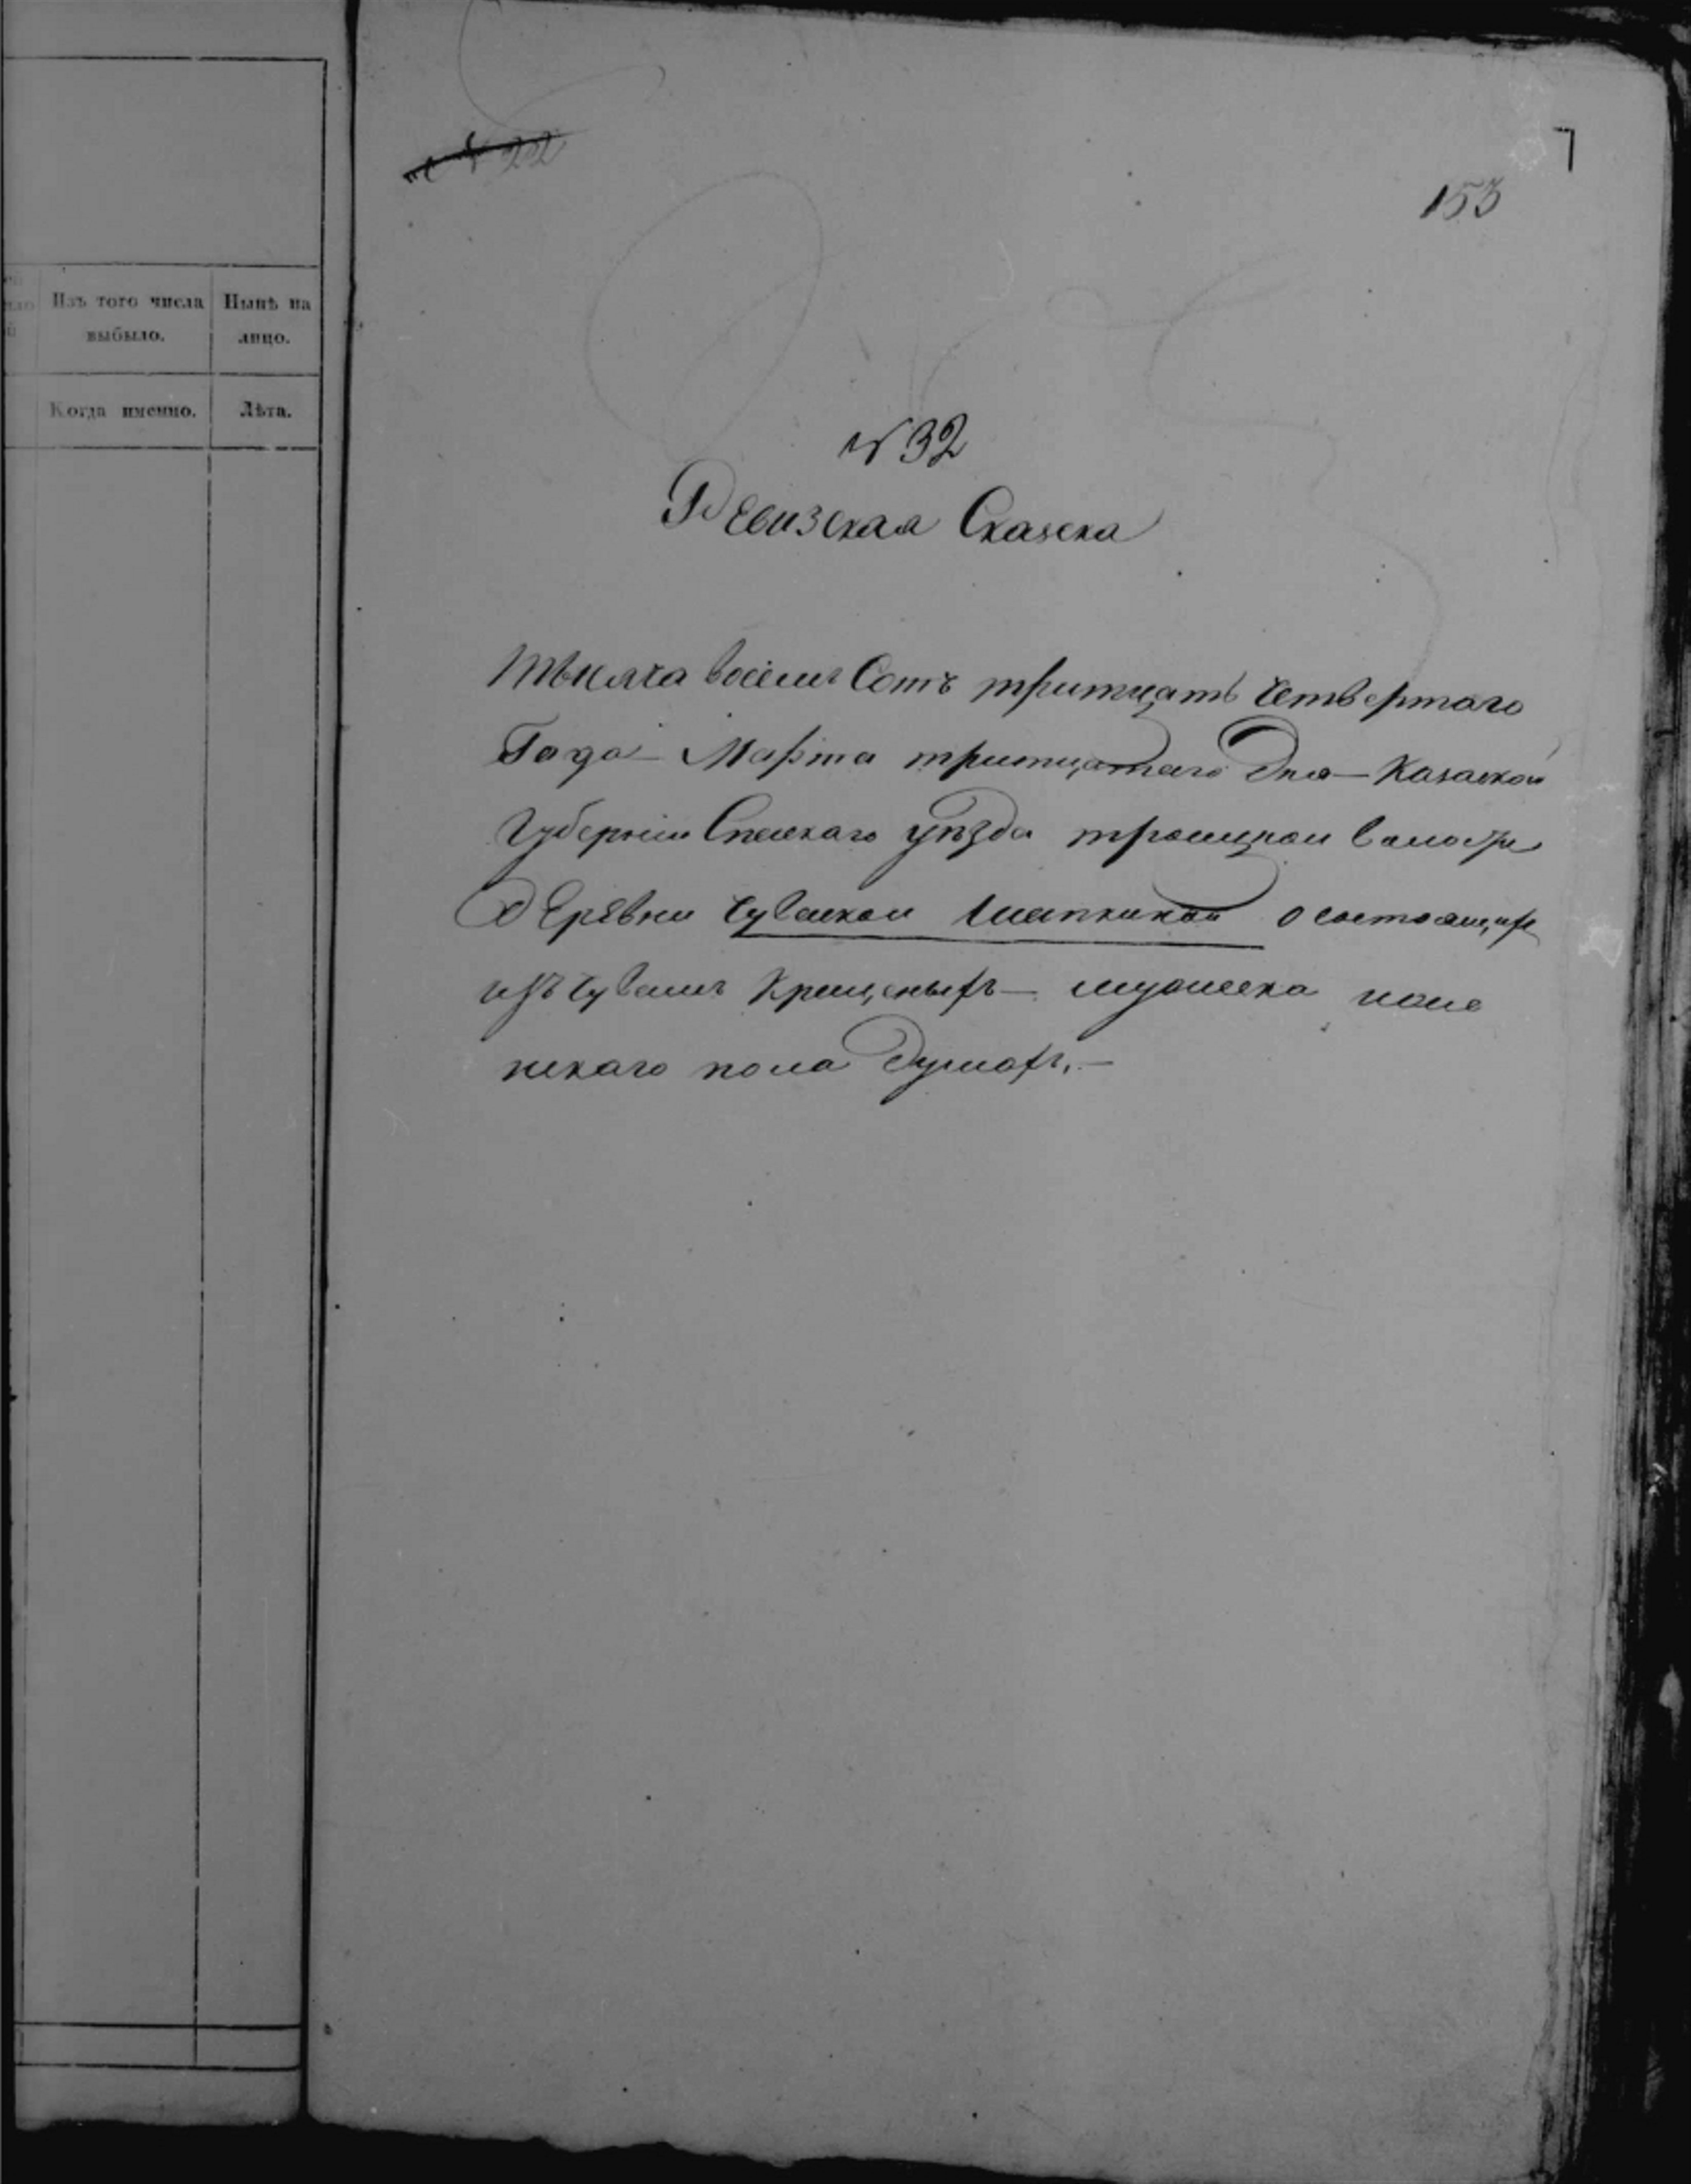 Изъ того числа
выбыло.
Нынѣ на
лицо.
Когда именно.
Лѣта.
7
153
№ 32
Ревизская Сказска
Тысяча восемь Сотъ тритцать Четвертаго
Года – Марта тритцатаго Дня – Казаской
Губерніи Спаскаго уѣзда троицкой валости
Деревни Чуваской Шапкиной о состоящих
изъ Чувашъ Крещеныхъ – мужеска и жен
искаго пола Душахъ. –